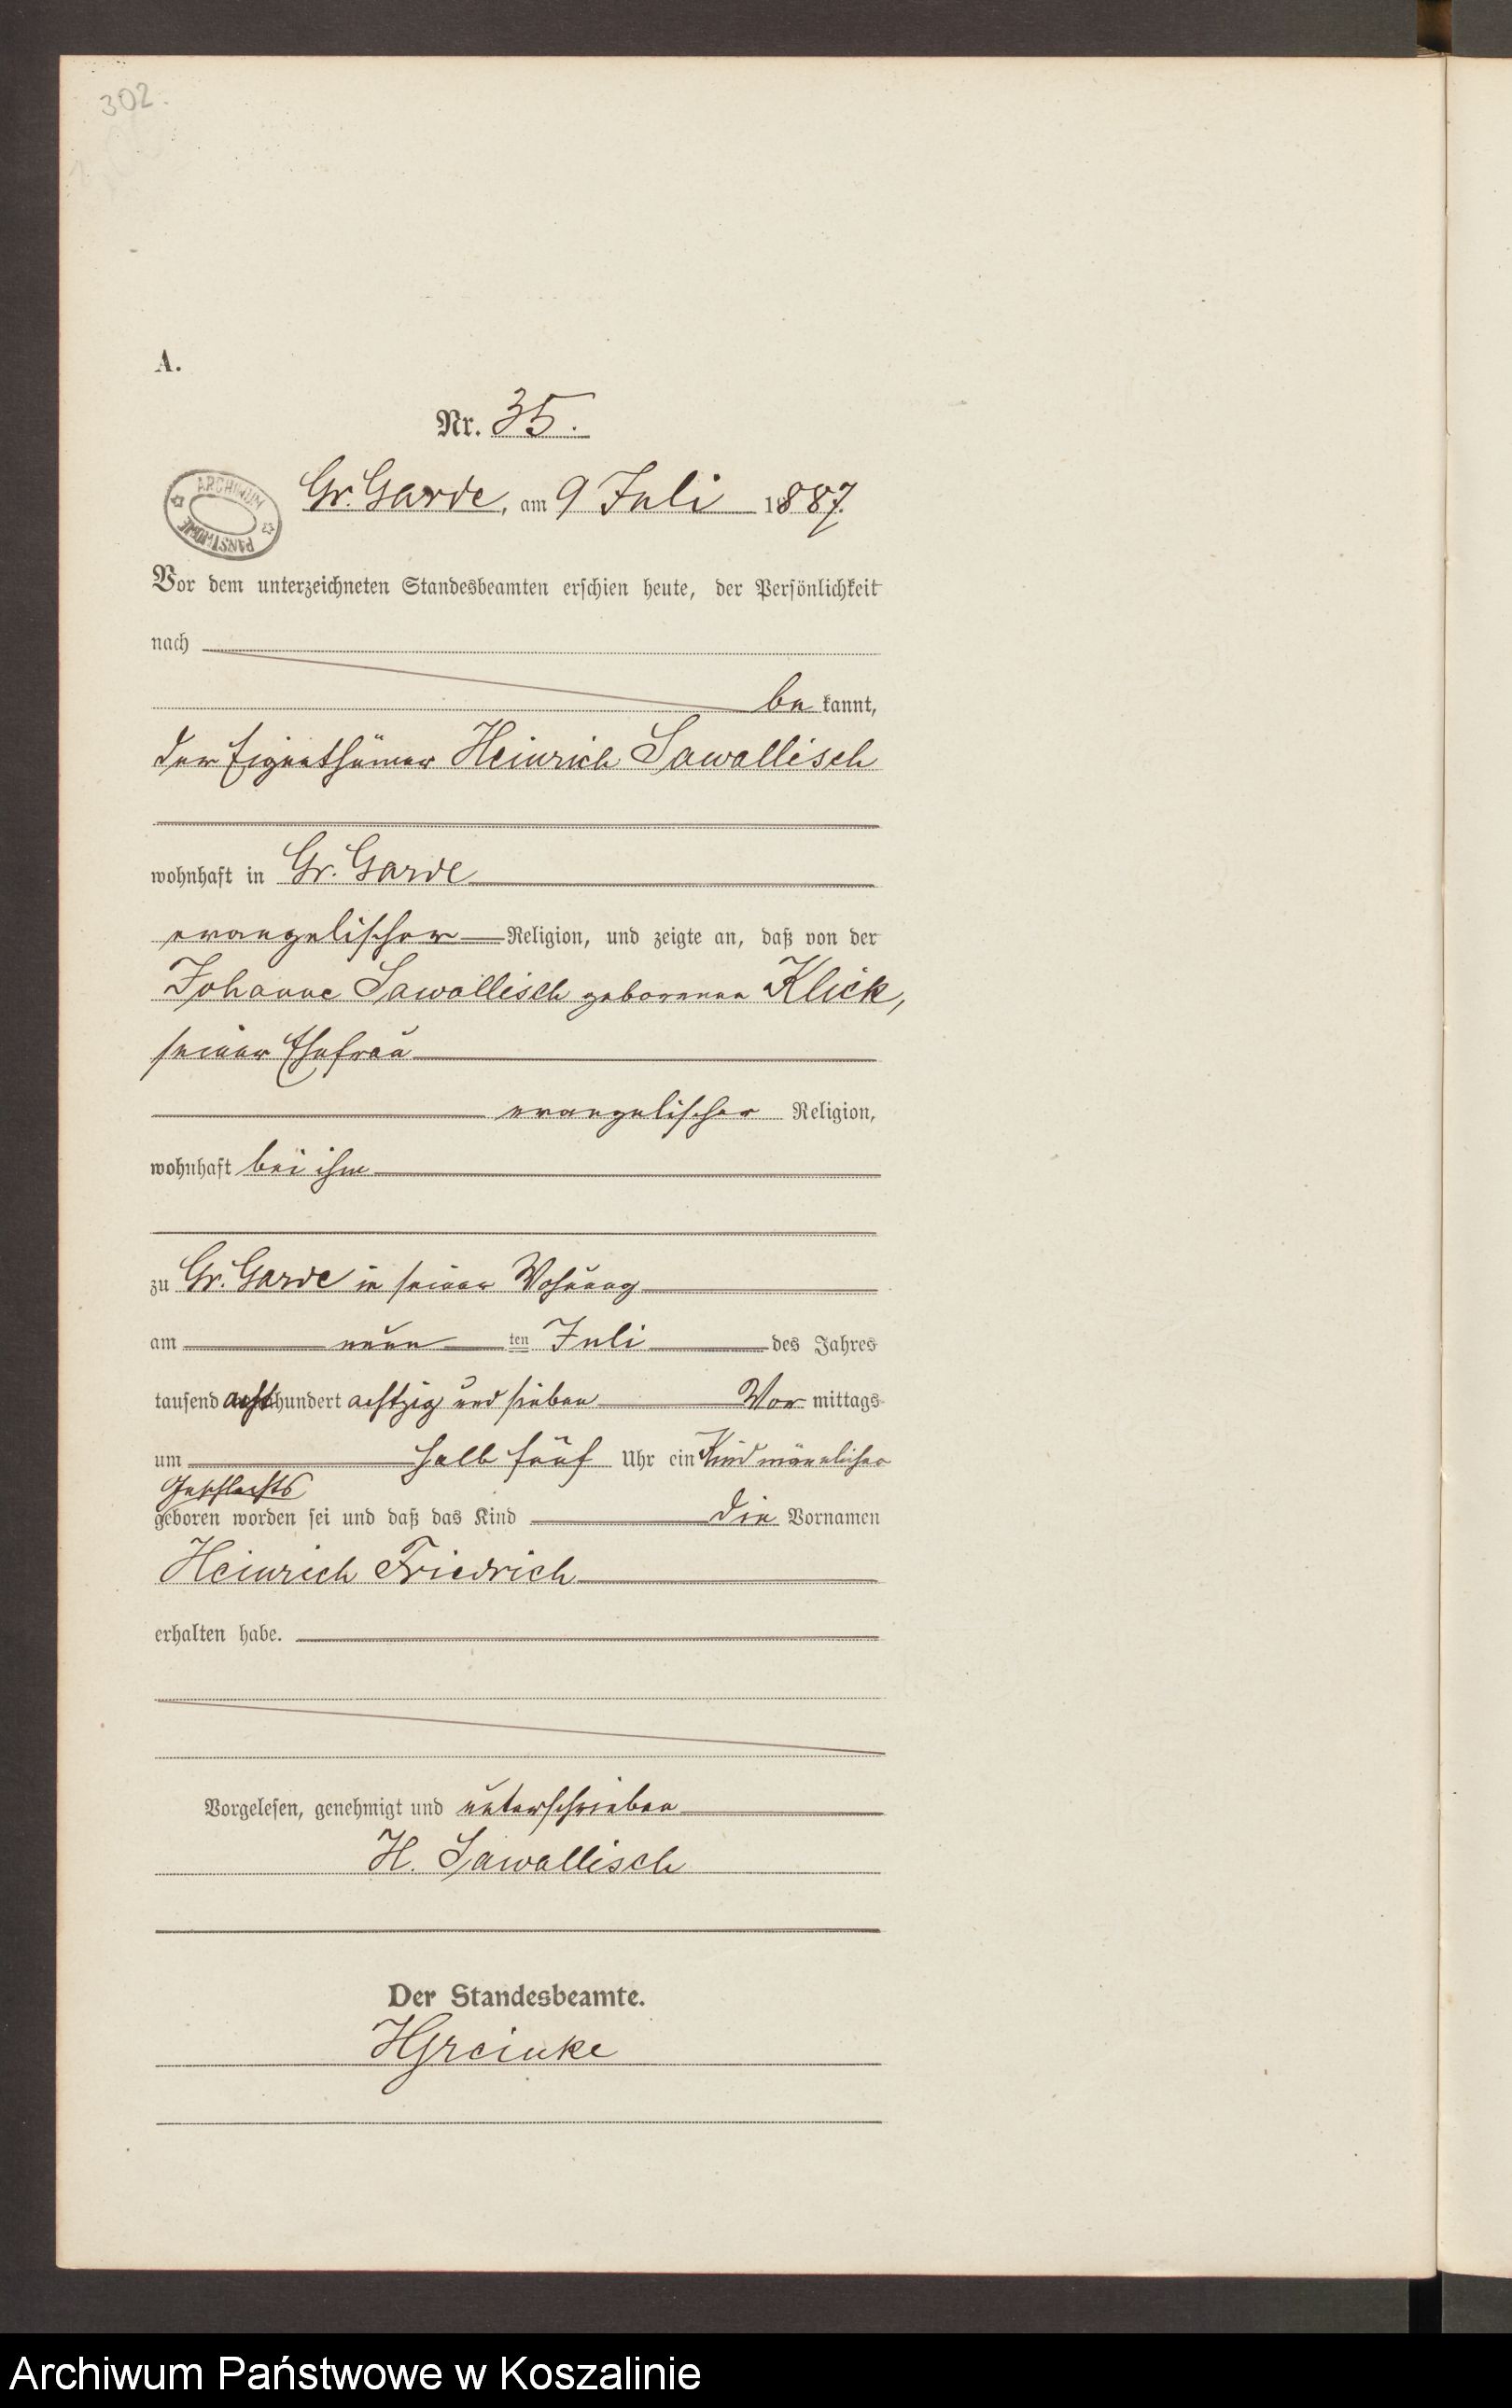 302.
A.
Nr. 35.
ARCHIWUM PAŃSTWOWE
Gr. Garde, am 9 Juli 1887.
Vor dem unterzeichneten Standesbeamten erschien heute, der Persönlichkeit
nach
be kannt,
der Eigenthümer Heinrich Sawallisch
wohnhaft in Gr. Garde
evangelischer Religion, und zeigte an, daß von der
Johanne Sawallisch geborenen Klick,
seiner Ehefrau
evangelischer Religion,
wohnhaft bei ihm
zu Gr. Garde in seiner Wohnung
am neun ten Juli des Jahres
tausend acht hundert achtzig und sieben Vor mittags
um halb fünf Uhr ein Kind männlichen
Geschlechts
geboren worden sei und daß das Kind die Vornamen
Heinrich Friedrich
erhalten habe.
Vorgelesen, genehmigt und unterschrieben
H. Sawallisch
Der Standesbeamte.
Archiwum Państwowe w Koszalinie